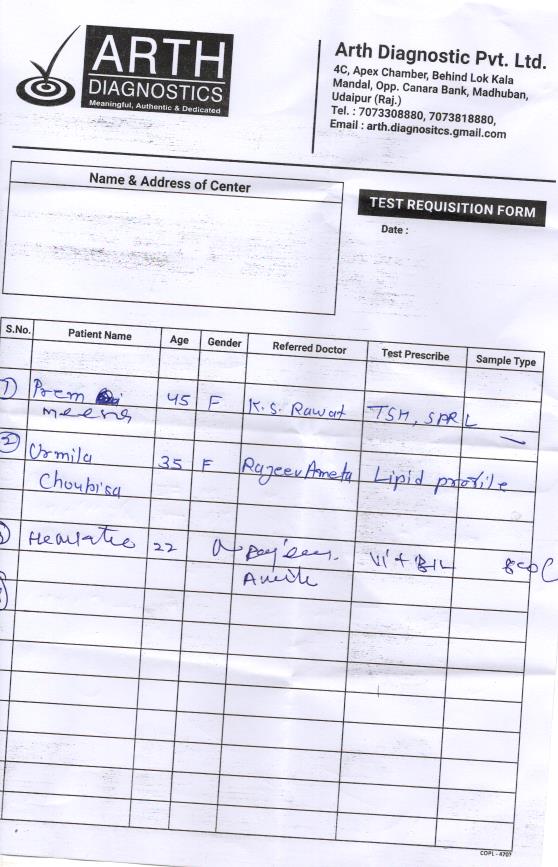 ARTH
DIAGNOSTICS
Meaningful, Authentic & Dedicated
Arth Diagnostic Pvt. Ltd.
4C, Apex Chamber, Behind Lok Kala
Mandal, Opp. Canara Bank, Madhuban,
Udaipur (Raj.)
Tel. : 7073308880, 7073818880,
Email : arth.diagnositcs.gmail.com
Name & Address of Center
TEST REQUISITION FORM
Date :
S.No. Patient Name Age Gender Referred Doctor Test Prescribe Sample Type
1) Prem 45 F K.S. Rawat TSH,
meena
2) Urmila 35 F Rajeev Ameta Lipid profile
Choubisa
22
COPL - 4707